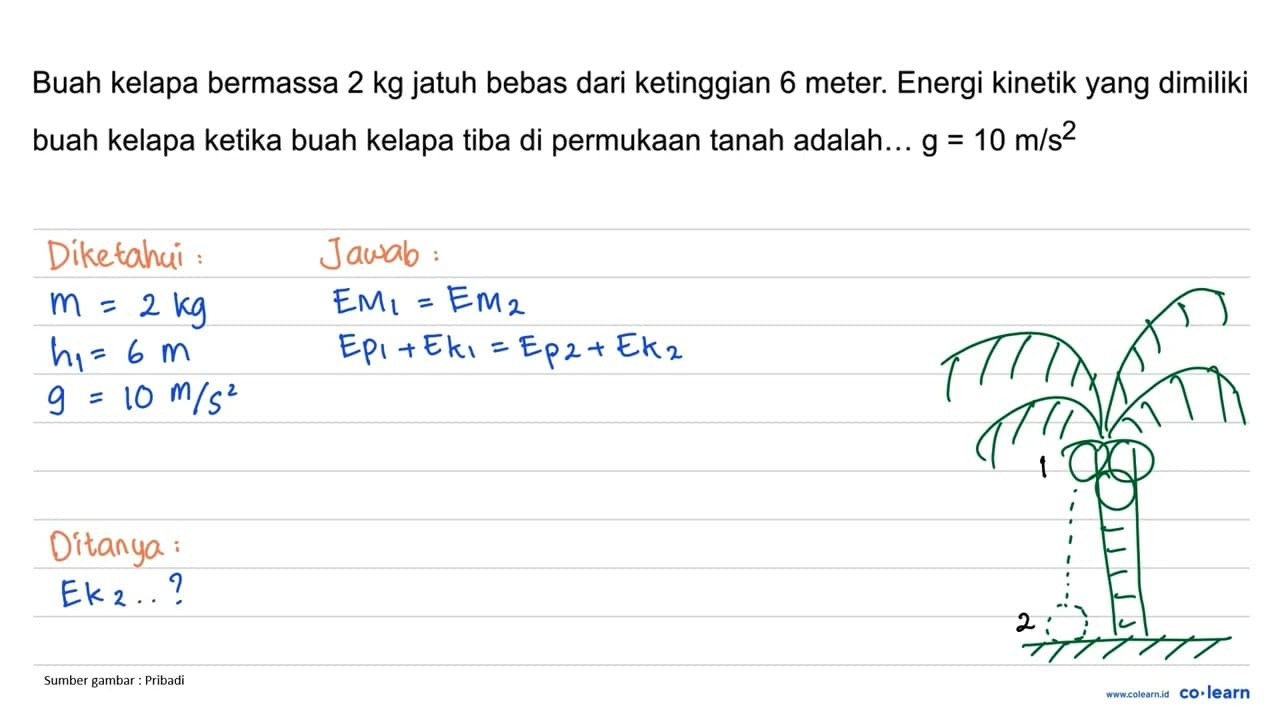 Buah kelapa bermassa 2 kg jatuh bebas dari ketinggian 6 meter. Energi kinetik yang dimiliki
buah kelapa ketika buah kelapa tiba di permukaan tanah adalah... g = 10 m/s²
Diketahui :
m = 2 kg
h₁ = 6 m
g = 10 m/s²
Ditanya :
Ek₂ .. ?
Jawab :
EM₁ = EM₂
Ep₁ + Ek₁ = Ep₂ + Ek₂
1
2
Sumber gambar : Pribadi
www.colearn.id co·learn